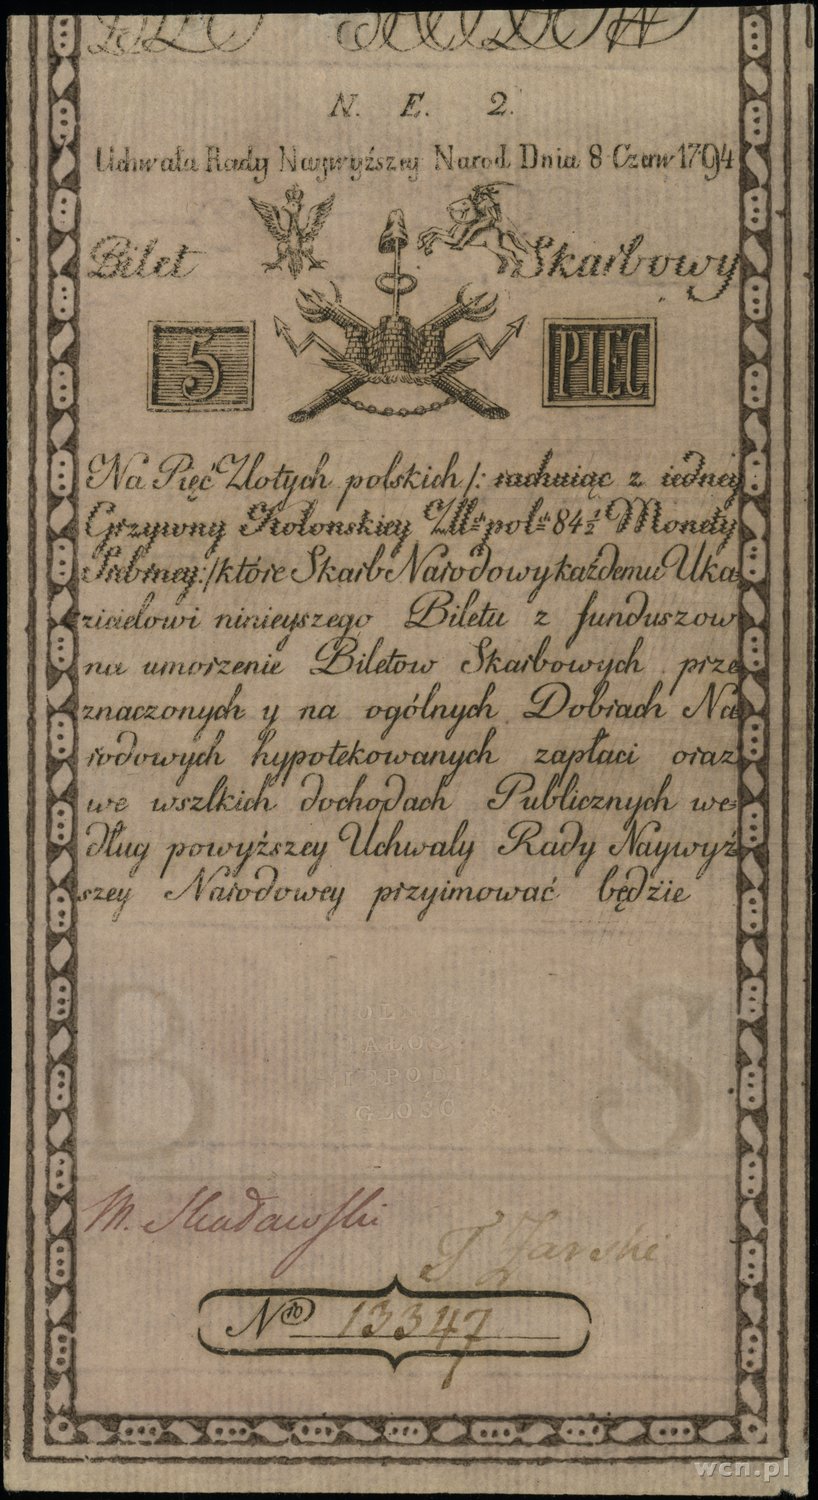 N. E. 2.
Uchwała Rady Naywyższey Narod. Dnia 8 Czerw 1794
Bilet Skarbowy
5 PIĘC
Na Pięć Złotych polskich /: rachuiąc z iedney
Grzywny Kolonskiey Zll: pol: 84½ Monety
Srebrney:/ które Skarb Narodowy każdemu Uka
zicielowi ninieyszego Biletu z funduszow
na umorzenie Biletow Skarbowych prze
znaczonych y na ogólnych Dobrach Na
rodowych hypotekowanych zapłaci oraz
we wszlkich dochodach Publicznych we=
dług powyższey Uchwały Rady Naywyż
szey Narodowey przyimować będzie
B S
OLNO
AŁOŚ
EPODL
GŁOŚĆ
M. Skadawski
T Zarski
No 13347
wcn.pl